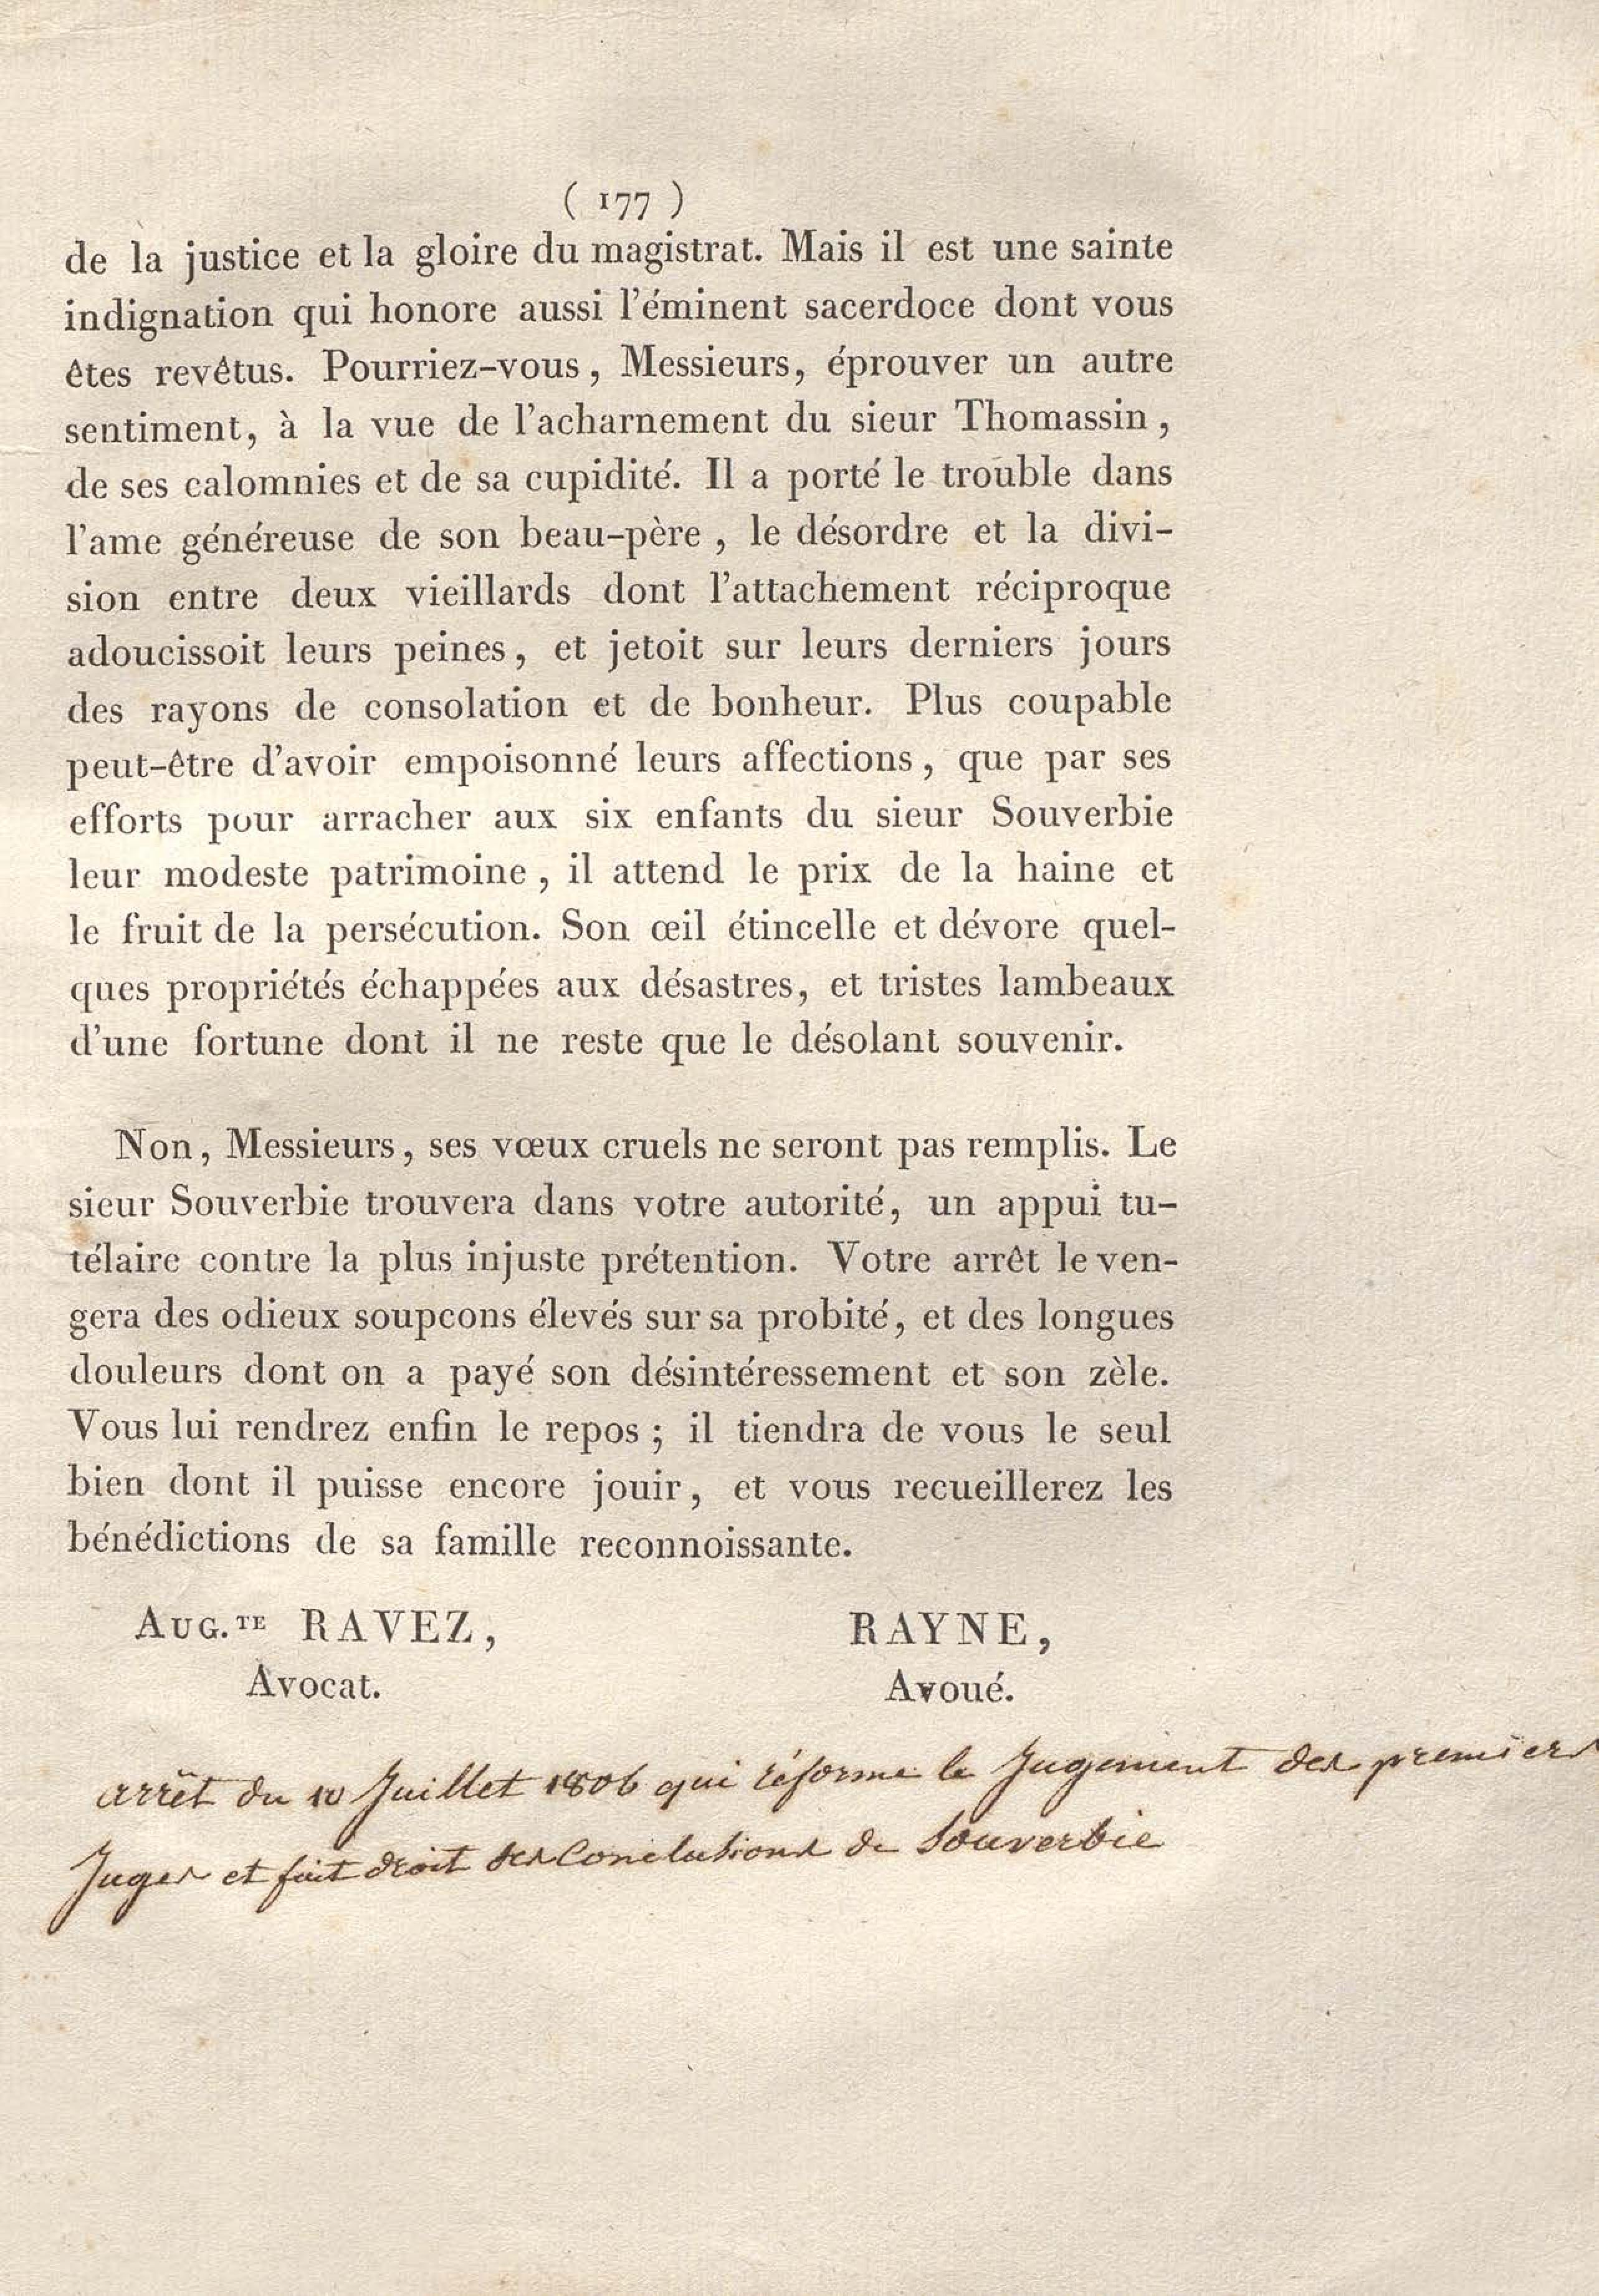 ( 177 )
de la justice et la gloire du magistrat. Mais il est une sainte
indignation qui honore aussi l'éminent sacerdoce dont vous
êtes revêtus. Pourriez-vous, Messieurs, éprouver un autre
sentiment, à la vue de l'acharnement du sieur Thomassin,
de ses calomnies et de sa cupidité. Il a porté le trouble dans
l'ame généreuse de son beau-père, le désordre et la divi-
sion entre deux vieillards dont l'attachement réciproque
adoucissoit leurs peines, et jetoit sur leurs derniers jours
des rayons de consolation et de bonheur. Plus coupable
peut-être d'avoir empoisonné leurs affections, que par ses
efforts pour arracher aux six enfants du sieur Souverbie
leur modeste patrimoine, il attend le prix de la haine et
le fruit de la persécution. Son œil étincelle et dévore quel-
ques propriétés échappées aux désastres, et tristes lambeaux
d'une fortune dont il ne reste que le désolant souvenir.
Non, Messieurs, ses vœux cruels ne seront pas remplis. Le
sieur Souverbie trouvera dans votre autorité, un appui tu-
télaire contre la plus injuste prétention. Votre arrêt le ven-
gera des odieux soupcons élevés sur sa probité, et des longues
douleurs dont on a payé son désintéressement et son zèle.
Vous lui rendrez enfin le repos ; il tiendra de vous le seul
bien dont il puisse encore jouir, et vous recueillerez les
bénédictions de sa famille reconnoissante.
AUG.TE RAVEZ, RAYNE,
Avocat. Avoué.
arrêt du 10 Juillet 1806 qui réforme le Jugement des premiers
Juges et fait droit des Conclusions de Souverbie